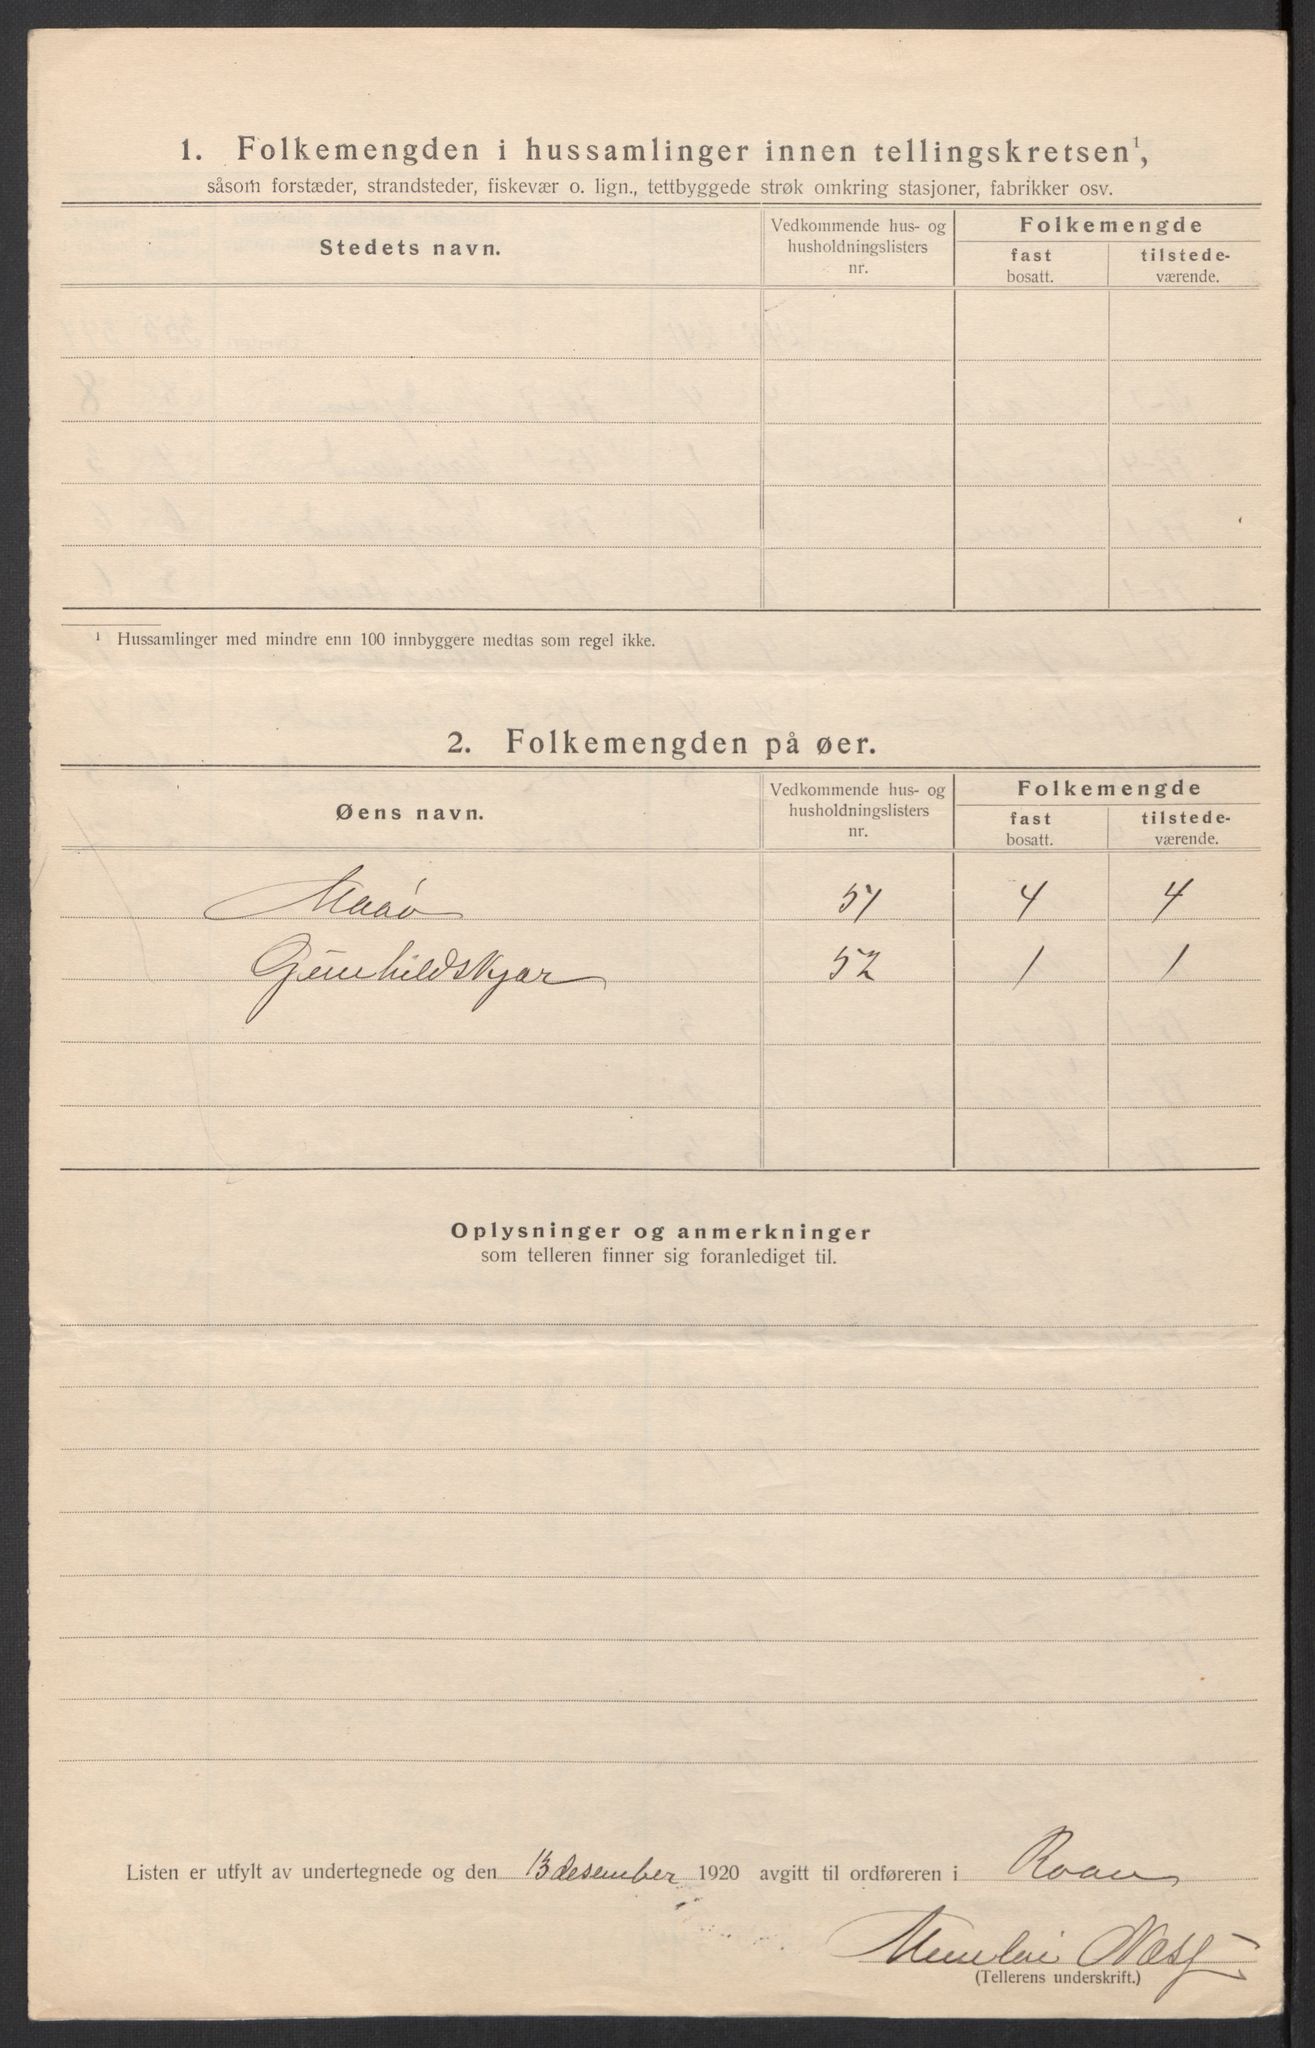 1. Folkemengden i hussamlinger innen tellingskretsen¹,
såsom forstæder, strandsteder, fiskevær o. lign., tettbyggede strøk omkring stasjoner, fabrikker osv.
Stedets navn.
Vedkommende hus- og husholdningslisters nr.
Folkemengde
fast bosatt.
tilstede-værende.
¹ Hussamlinger med mindre enn 100 innbyggere medtas som regel ikke.
2. Folkemengden på øer.
Øens navn.
Vedkommende hus- og husholdningslisters nr.
Folkemengde
fast bosatt.
tilstede-værende.
Maaø 51 4 4
Gunhildskjær 52 1 1
Oplysninger og anmerkninger
som telleren finner sig foranlediget til.
Listen er utfylt av undertegnede og den 13 desember 1920 avgitt til ordføreren i Roan
(Tellerens underskrift.)